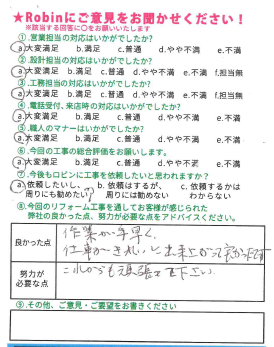 ★Robinにご意見をお聞かせください！
※該当する回答に○をお願いいたします
①.営業担当の対応はいかがでしたか?
a.大変満足 b.満足 c.普通 d.やや不満 e.不満
②.設計担当の対応はいかがでしたか?
a.大変満足 b.満足 c.普通 d.やや不満 e.不満 f.担当無
③.工務担当の対応はいかがでしたか?
a.大変満足 b.満足 c.普通 d.やや不満 e.不満 f.担当無
④.電話受付、来店時の対応はいかがでしたか?
a.大変満足 b.満足 c.普通 d.やや不満 e.不満
⑤.職人のマナーはいかがでしたか?
a.大変満足 b.満足 c.普通 d.やや不満 e.不満
⑥.今回の工事の総合評価をお願いします。
a.大変満足 b.満足 c.普通 d.やや不満 e.不満
⑦.今後もロビンに工事を依頼したいと思われますか?
a.依頼したいし、 b.依頼はするが、 c.依頼するかは
周りにも勧めたい? 周りには勧めない わからない
⑧.今回のリフォーム工事を通してお客様が感じられた
弊社の良かった点、努力が必要な点をアドバイスください。
良かった点 作業が手早く、
仕事がきれいに出来上がって良かったです
努力が
必要な点 これからも頑張って下さい
⑨.その他、ご意見・ご要望をお書きください